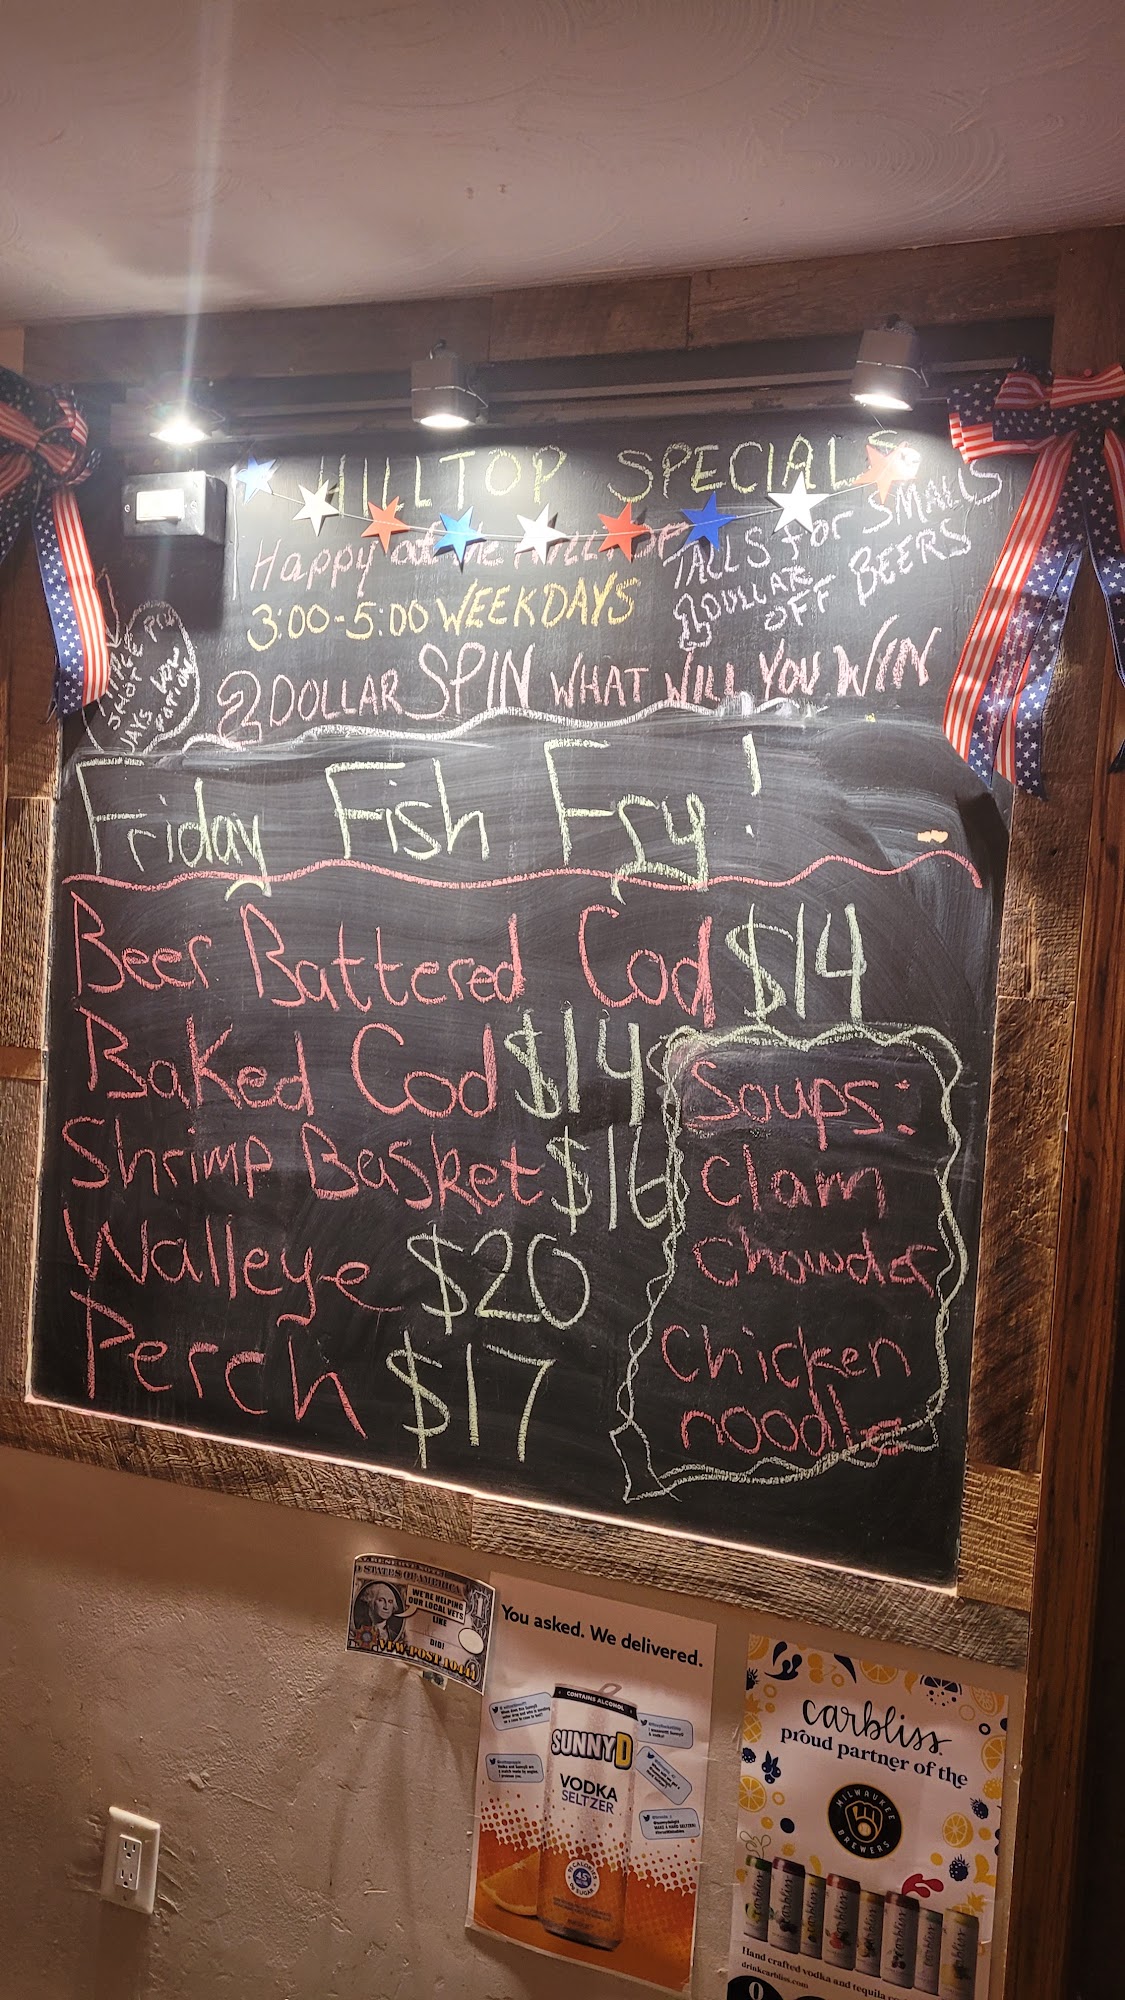 HILLTOP SPECIALS
Happy at the HILLTOP
3:00-5:00 WEEKDAYS
TALLS for SMALLS
DOLLAR OFF BEERS
2 DOLLAR SPIN WHAT WILL YOU WIN
Friday Fish Fry!
Beer Battered Cod $14
Baked Cod $14
Shrimp Basket $16
Walleye $20
Perch $17
Soups:
Clam
Chowder
Chicken
noodle
STATES OF AMERICA
WE'RE HELPING
OUR LOCAL VETS
LIKE
DID!
VFW POST
You asked. We delivered.
CONTAINS ALCOHOL
SUNNYD
VODKA
SELTZER
carbliss
proud partner of the
MILWAUKEE
BREWERS
carbliss
carbliss
carbliss
carbliss
Hand crafted vodka and tequila
drinkcarbliss.com